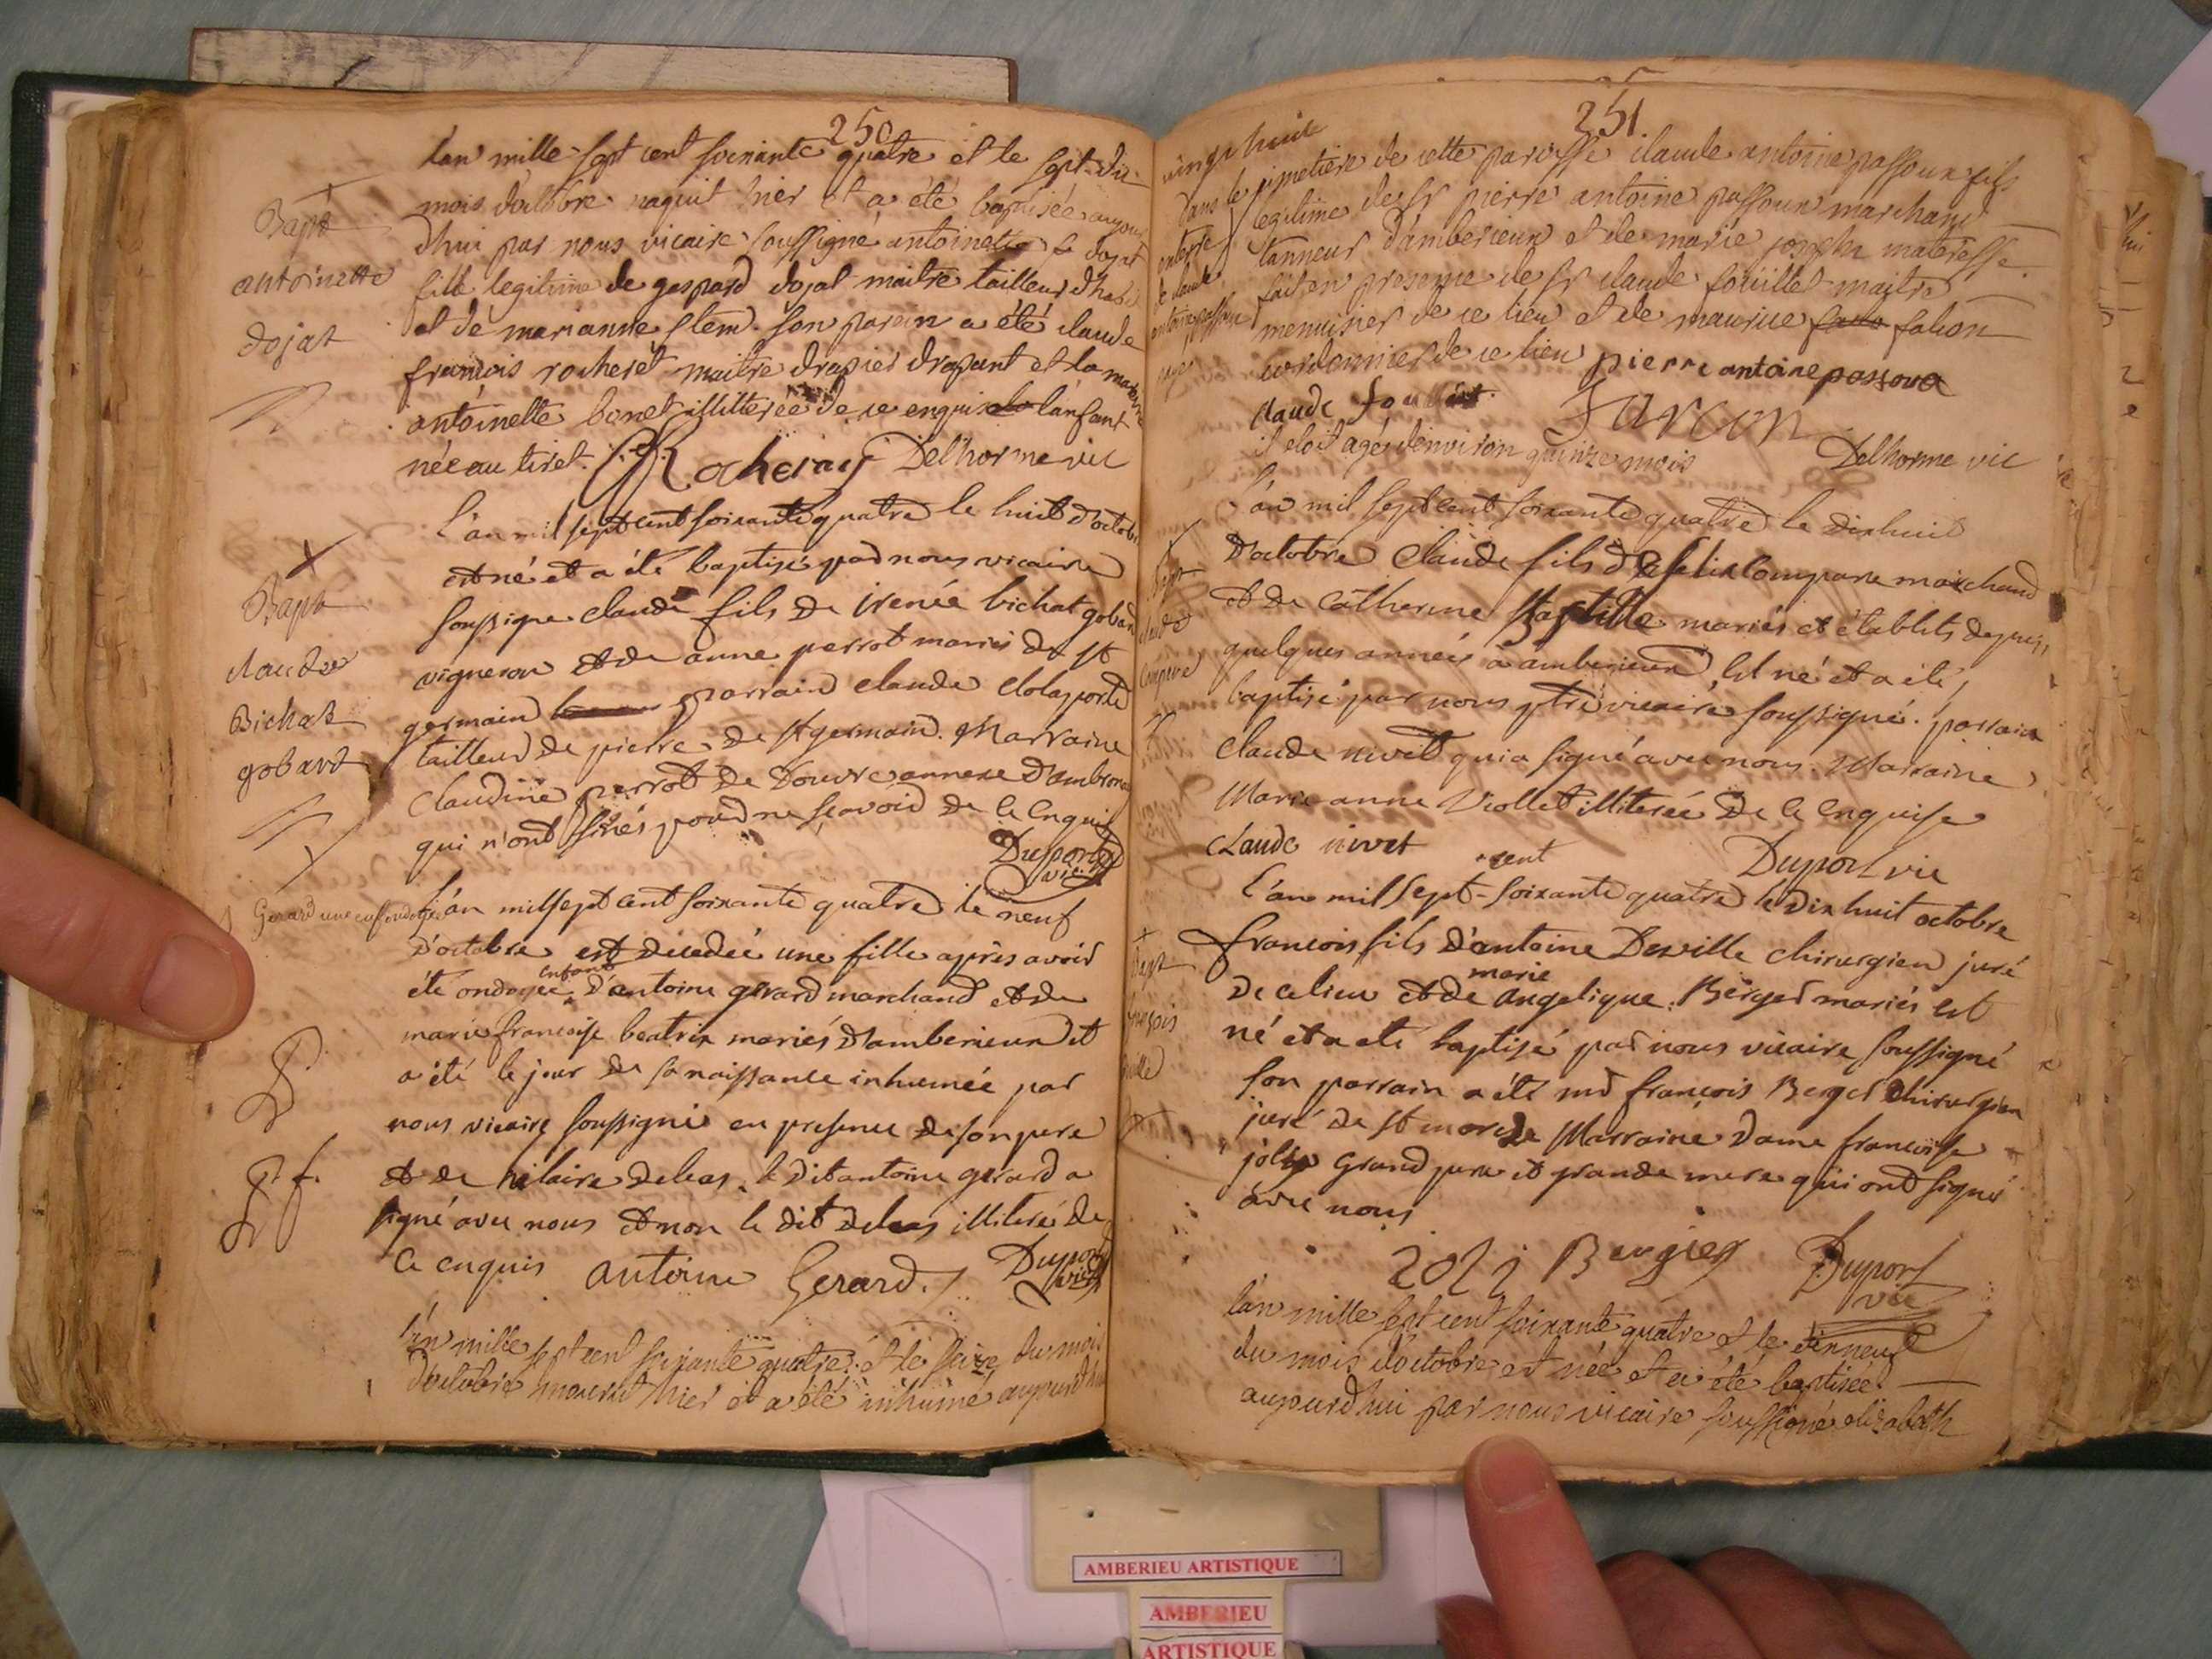 250
Lan mille sept cent soixante quatre et le sept du
mois d'octobre naquit hier et a été baptisée aujour
dhui par nous vicaire soussigné antoinette
fille legitime de gaspard dojat maitre tailleur d'habi
et de marianne stem. son parein a été claude
francois rocheret maitre drapier drapant et la maraine
antoinette bonet illitterée de ce enquise l'enfant
née au tiret. Rocheray Delhorme vic
Bapt
antoinette
dojat
L'an mil sept cent soixante quatre le huit d'octob
est né et a été baptisé par nous vicaire
soussigné claude fils de irenée bichat gobard
vigneron et de anne perrot mariés de st
germain parrain claude delaporte
tailleur de pierre de st germain. Marraine
Claudine perrot de Douvre annexe d'ambronai
qui n'ont pour ne sçavoir de ce Enquis
Duport
vic.
Bapt
claude
Bichat
gobard
L'an mil sept cent soixante quatre le neuf
D'octobre est décedée une fille après avoir
été ondoyée enfant D'antoine gerard marchand et de
marie francoise beatrix mariés d'amberieux et
a été le jour de sa naissance inhumée par
nous vicaire soussigné en presence de son pere
et de hilaire debas, le dit antoine gerard a
signé avec nous et non le dit debas illiteré de
Ce enquis antoine Gerard. Duport
vic
Gerard une
l'an mille sept cent soixante quatre et le seize du mois
d'octobre mourut hier et a été inhumé aujourdhui
251
dans le cimetière de cette paroisse claude antoine passoux fils
legitime de sr pierre antoine passoux marchand
tanneur d'amberieux et de marie joseph materesse.
fait en presence de sr claude foüillet maitre
menuisier de ce lieu et de maurice falion
cordonnier de ce lieu pierre antoine passoux
claude
il etoit agé d'environ quinze mois Delhorme vic
enterre
de claude
antoine passou
L'an mil sept cent soixante quatre le dixhuit
D'octobre Claude fils de felix Compare marchand
et de Catherine mariés et établits depuis
quelques années à amberieux, Est né et a été
baptisé par nous ptre vicaire soussigné. parrain
Claude nivet qui a signé avec nous. Marraine
Marie anne Viollet illiterée De Ce Enquise
Claude nivet Duport vic
Bapt
claude
compare
L'an mil Sept cent soixante quatre le Dixhuit octobre
francois fils d'antoine Deville chirurgien juré
De ce lieu et de marie angelique Berger mariés est
né et a été baptisé par nous vicaire soussigné
son parrain a été mr francois Berger chirurgien
juré de st Marraine Dame francoise
joly Grand pere et grande mere qui ont signé
avec nous
joly Bergier Duport
vic
l'an mille sept cent soixante quatre et le dixneuf
du mois d'octobre est née et a été baptisée
aujourdhui par nous vicaire soussigné elizabeth
AMBERIEU ARTISTIQUE
AMBERIEU
ARTISTIQUE